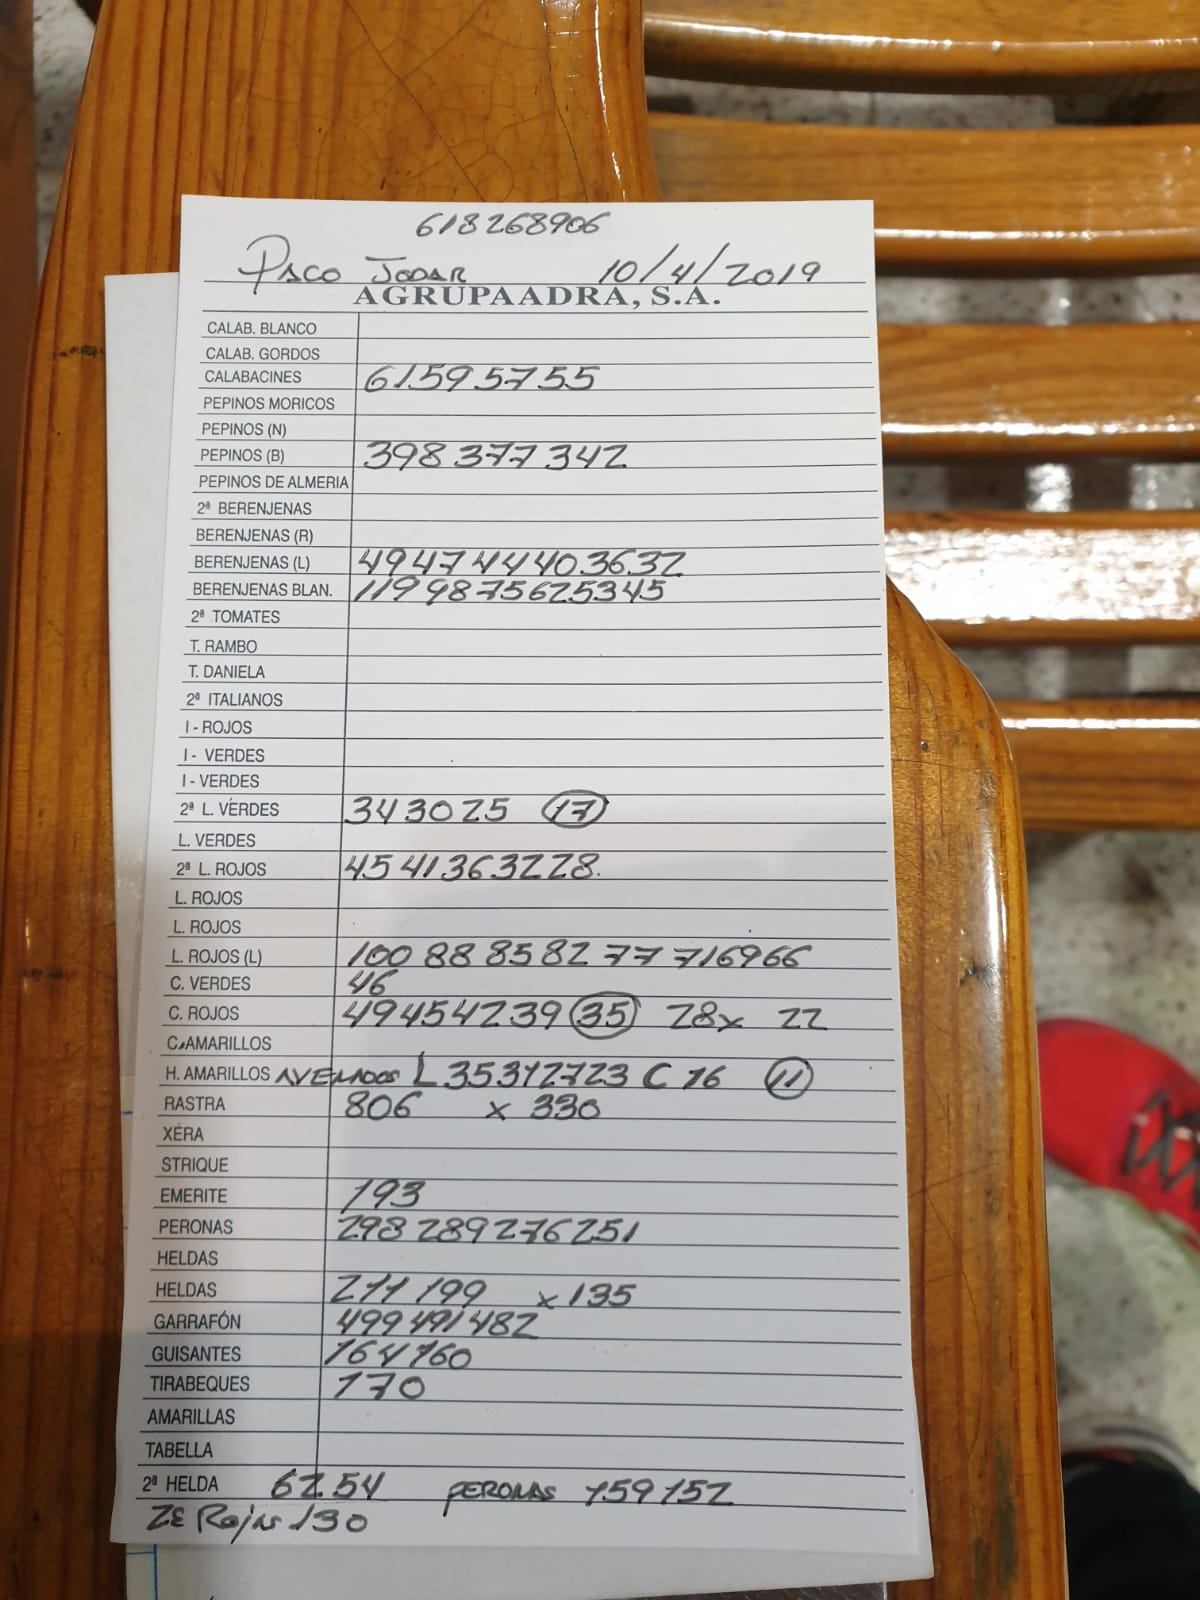 618268906
Paco Jodar 10/4/2019
AGRUPAADRA, S.A.
CALAB. BLANCO
CALAB. GORDOS
CALABACINES 61595755
PEPINOS MORICOS
PEPINOS (N)
PEPINOS (B) 398 377 342
PEPINOS DE ALMERIA
2ª BERENJENAS
BERENJENAS (R)
BERENJENAS (L) 49 47 44 40.36.32
BERENJENAS BLAN. 119 98 75 62 53 45
2ª TOMATES
T. RAMBO
T. DANIELA
2ª ITALIANOS
I - ROJOS
I - VERDES
I - VERDES
2ª L. VERDES 34 30 25 17
L. VERDES
2ª L. ROJOS 45 41 36 32 28.
L. ROJOS
L. ROJOS
L. ROJOS (L) 100 88 85 82 77 71 69 66
C. VERDES 46
C. ROJOS 49 45 42 39 35 28x 22
C. AMARILLOS
H. AMARILLOS L 35312723 C 16 11
RASTRA 806 x 330
XÉRA
STRIQUE
EMERITE 193
PERONAS 298 289 276 251
HELDAS
HELDAS 211 199 x 135
GARRAFÓN 499 491 482
GUISANTES 164 160
TIRABEQUES 170
AMARILLAS
TABELLA
2ª HELDA 62.54 PERONAS 159 152
130